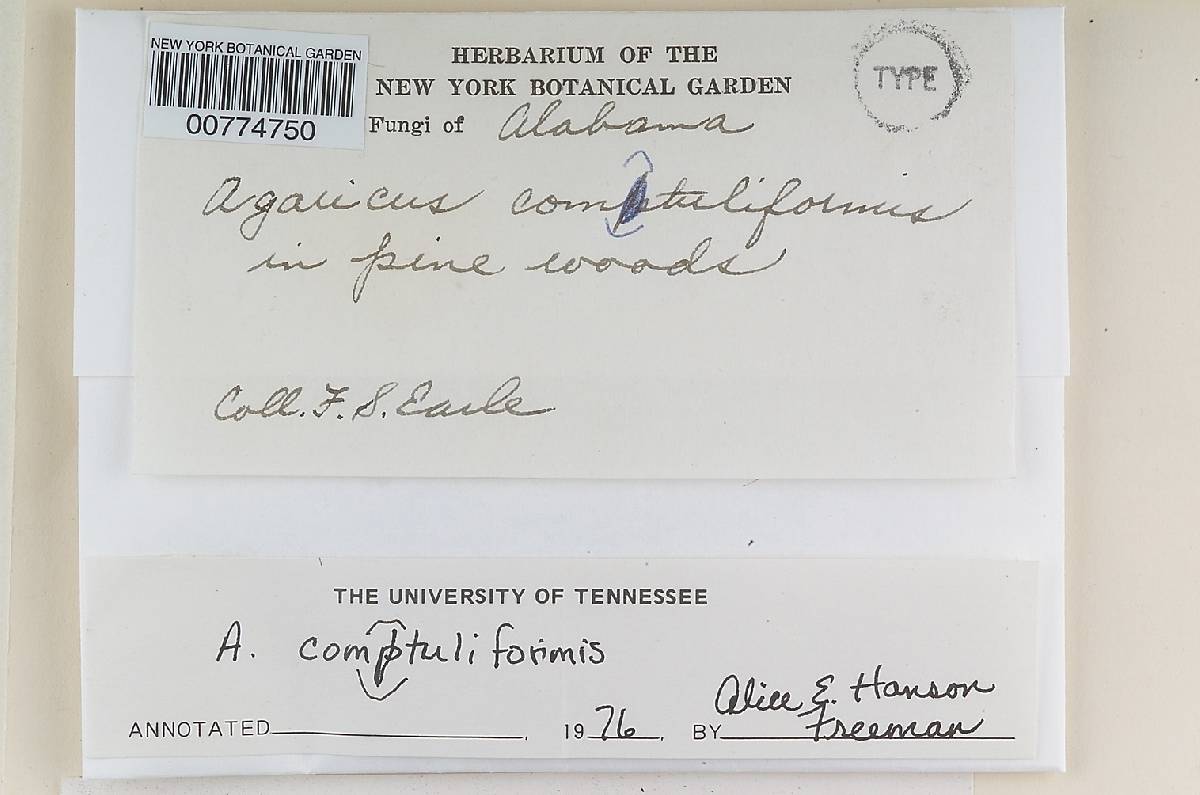 NEW YORK BOTANICAL GARDEN
00774750
HERBARIUM OF THE
NEW YORK BOTANICAL GARDEN
TYPE
Fungi of Alabama
Agaricus comptuliformis
in pine woods
Coll. F. S. Earle
THE UNIVERSITY OF TENNESSEE
A. comptuliformis
Alice E. Hanson
ANNOTATED . 19 76 . BY Freeman